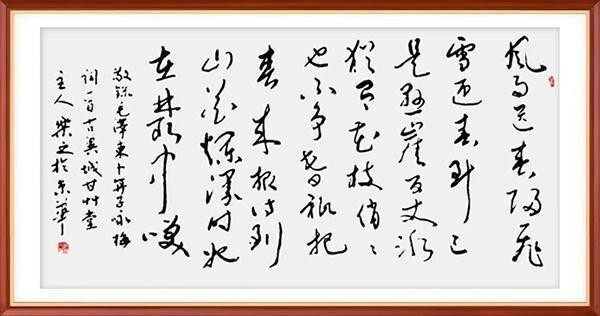 風雨送春歸飛
雪迎春到已
是懸崖百丈冰
猶有花枝俏〻
也不争春祇把
春来報待到
山花爛漫时她
在叢中咲
敬録毛澤東卜算子咏梅
詞一首古冀城甘艸堂
主人樂之於京華